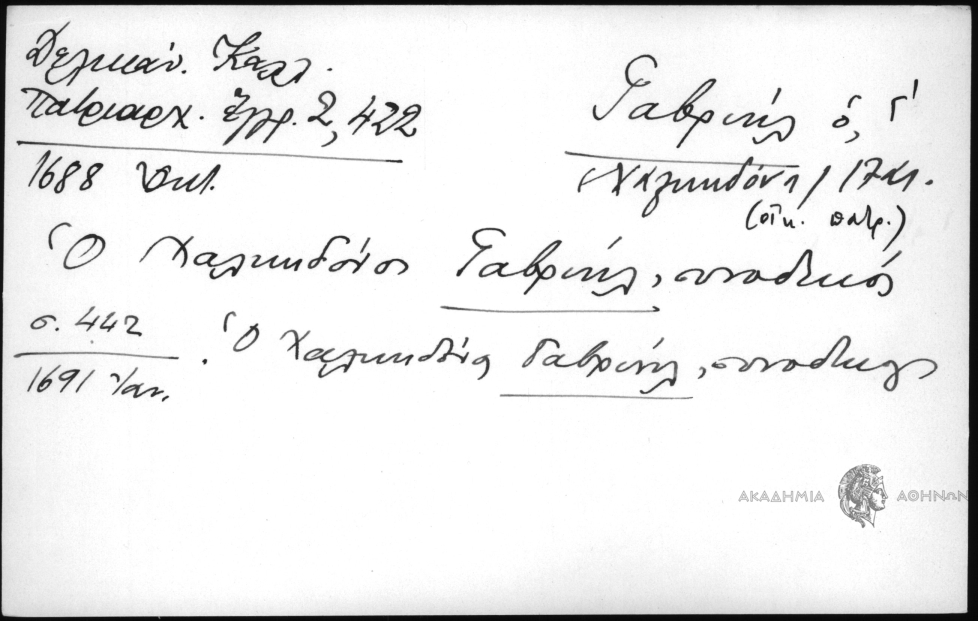 Δελικάν. Καλλ.
Πατριαρχ. Ἔγγρ. 2, 422
1688 Ὀκτ.
Γαβριήλ ὁ, Γ΄
Χαλκηδόνος
(οἰκ. πατρ.)
Ὁ Χαλκηδόνος Γαβριήλ, συνοδικός
σ. 442
1691 Ἰαν.
Ὁ Χαλκηδόνος Γαβριήλ, συνοδικός
ΑΚΑΔΗΜΙΑ ΑΘΗΝΩΝ